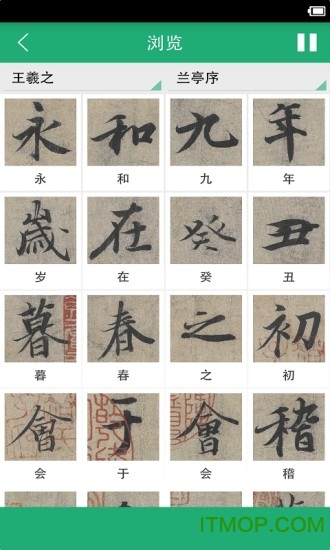 浏览
王羲之 兰亭序
永 和 九 年
永 和 九 年
歲 在 癸 丑
岁 在 癸 丑
暮 春 之 初
暮 春 之 初
會 于 會 稽
会 于 会 稽
ITMOP.COM